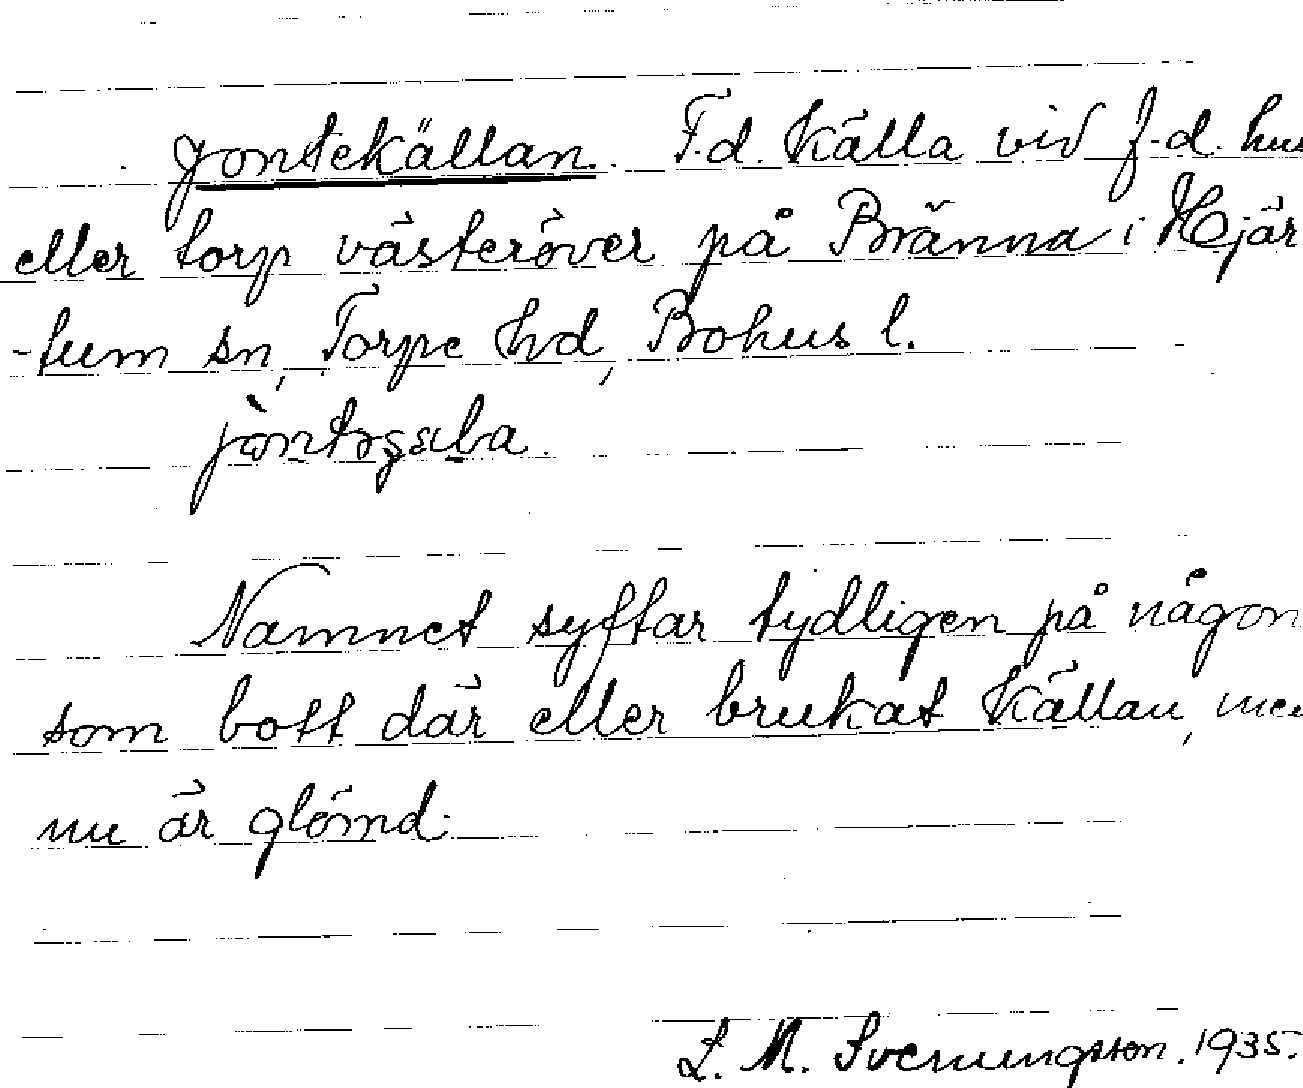 Jontekällan. F.d. källa vid f.d. hus
eller torp västeröver på Bränna i Hjär
-tum sn, Torpe hd, Bohus l.
Namnet syftar tydligen på någon
som bott där eller brukat källan, men
nu är glömd.
L. M. Svenungsson. 1935.